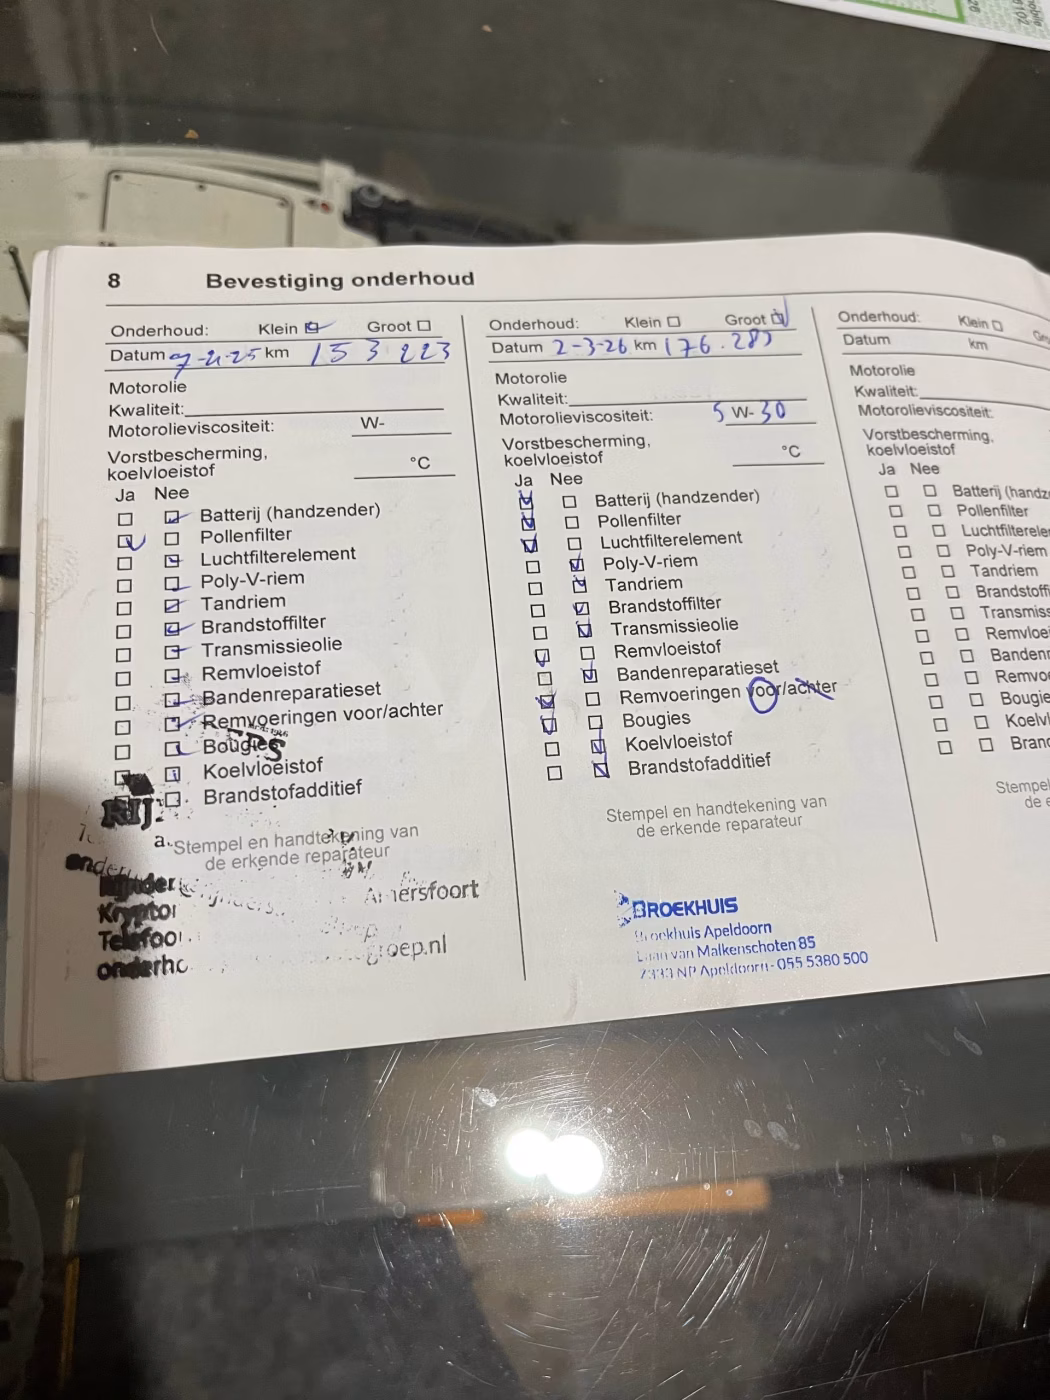 8 Bevestiging onderhoud
Onderhoud: Klein Groot
Datum km 153 223
Motorolie
Kwaliteit:
Motorolieviscositeit: W-
Vorstbescherming,
koelvloeistof °C
Ja Nee
Batterij (handzender)
Pollenfilter
Luchtfilterelement
Poly-V-riem
Tandriem
Brandstoffilter
Transmissieolie
Remvloeistof
Bandenreparatieset
Remvoeringen voor/achter
Bougies
Koelvloeistof
Brandstofadditief
Stempel en handtekening van
de erkende reparateur
Amersfoort
Onderhoud: Klein Groot
Datum 2-3-26 km 176.28
Motorolie
Kwaliteit:
Motorolieviscositeit: 5 W-30
Vorstbescherming,
koelvloeistof °C
Ja Nee
Batterij (handzender)
Pollenfilter
Luchtfilterelement
Poly-V-riem
Tandriem
Brandstoffilter
Transmissieolie
Remvloeistof
Bandenreparatieset
Remvoeringen voor/achter
Bougies
Koelvloeistof
Brandstofadditief
Stempel en handtekening van
de erkende reparateur
BROEKHUIS
Broekhuis Apeldoorn
Laan van Malkenschoten 85
7333 NP Apeldoorn - 055 5380 500
Onderhoud: Klein
Datum km
Motorolie
Kwaliteit:
Motorolieviscositeit:
Vorstbescherming,
koelvloeistof
Ja Nee
Batterij (handz
Pollenfilter
Luchtfilterele
Poly-V-riem
Tandriem
Brandstoffi
Transmiss
Remvloei
Bandenr
Remvo
Bougie
Koelvl
Branc
Stempel
de e